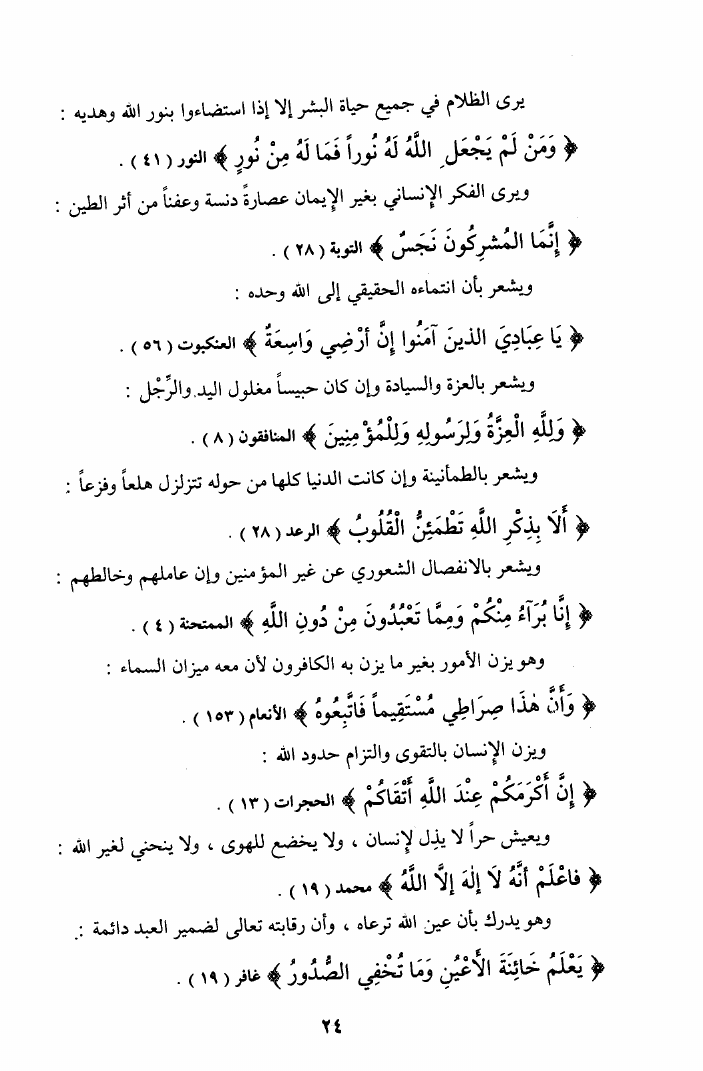 يرى الظلام في جميع حياة البشر إلا إذا استضاءوا بنور الله وهديه :
﴿ وَمَنْ لَمْ يَجْعَلِ اللَّهُ لَهُ نُوراً فَمَا لَهُ مِنْ نُورٍ ﴾ النور (٤١) .
ويرى الفكر الإنساني بغير الإيمان عصارةً دنسة وعفناً من أثر الطين :
﴿ إِنَّمَا المُشرِكُونَ نَجَسٌ ﴾ التوبة (٢٨) .
ويشعر بأن انتماءه الحقيقي إلى الله وحده :
﴿ يَا عِبَادِيَ الذينَ آمَنُوا إِنَّ أرْضِي وَاسِعَةٌ ﴾ العنكبوت (٥٦) .
ويشعر بالعزة والسيادة وإن كان حبيساً مغلول اليد والرِّجْل :
﴿ وَلِلَّهِ الْعِزَّةُ وَلِرَسُولِهِ وَلِلْمُؤْمِنِينَ ﴾ المنافقون (٨) .
ويشعر بالطمأنينة وإن كانت الدنيا كلها من حوله تتزلزل هلعاً وفزعاً :
﴿ أَلَا بِذِكْرِ اللَّهِ تَطْمَئِنُّ الْقُلُوبُ ﴾ الرعد (٢٨) .
ويشعر بالانفصال الشعوري عن غير المؤمنين وإن عاملهم وخالطهم :
﴿ إِنَّا بُرَآءُ مِنْكُمْ وَمِمَّا تَعْبُدُونَ مِنْ دُونِ اللَّهِ ﴾ الممتحنة (٤) .
وهو يزن الأمور بغير ما يزن به الكافرون لأن معه ميزان السماء :
﴿ وَأَنَّ هٰذَا صِرَاطِي مُسْتَقِيماً فَاتَّبِعُوهُ ﴾ الأنعام (١٥٣) .
ويزن الإنسان بالتقوى والتزام حدود الله :
﴿ إِنَّ أَكْرَمَكُمْ عِنْدَ اللَّهِ أَتْقَاكُمْ ﴾ الحجرات (١٣) .
ويعيش حراً لا يذِل لإنسان ، ولا يخضع للهوى ، ولا ينحني لغير الله :
﴿ فاعْلَمْ أنَّهُ لَا إِلٰهَ إلاَّ اللَّهُ ﴾ محمد (١٩) .
وهو يدرك بأن عين الله ترعاه ، وأن رقابته تعالى لضمير العبد دائمة :
﴿ يَعْلَمُ خَائِنَةَ الأَعْيُنِ وَمَا تُخْفِي الصُّدُورُ ﴾ غافر (١٩) .
٢٤